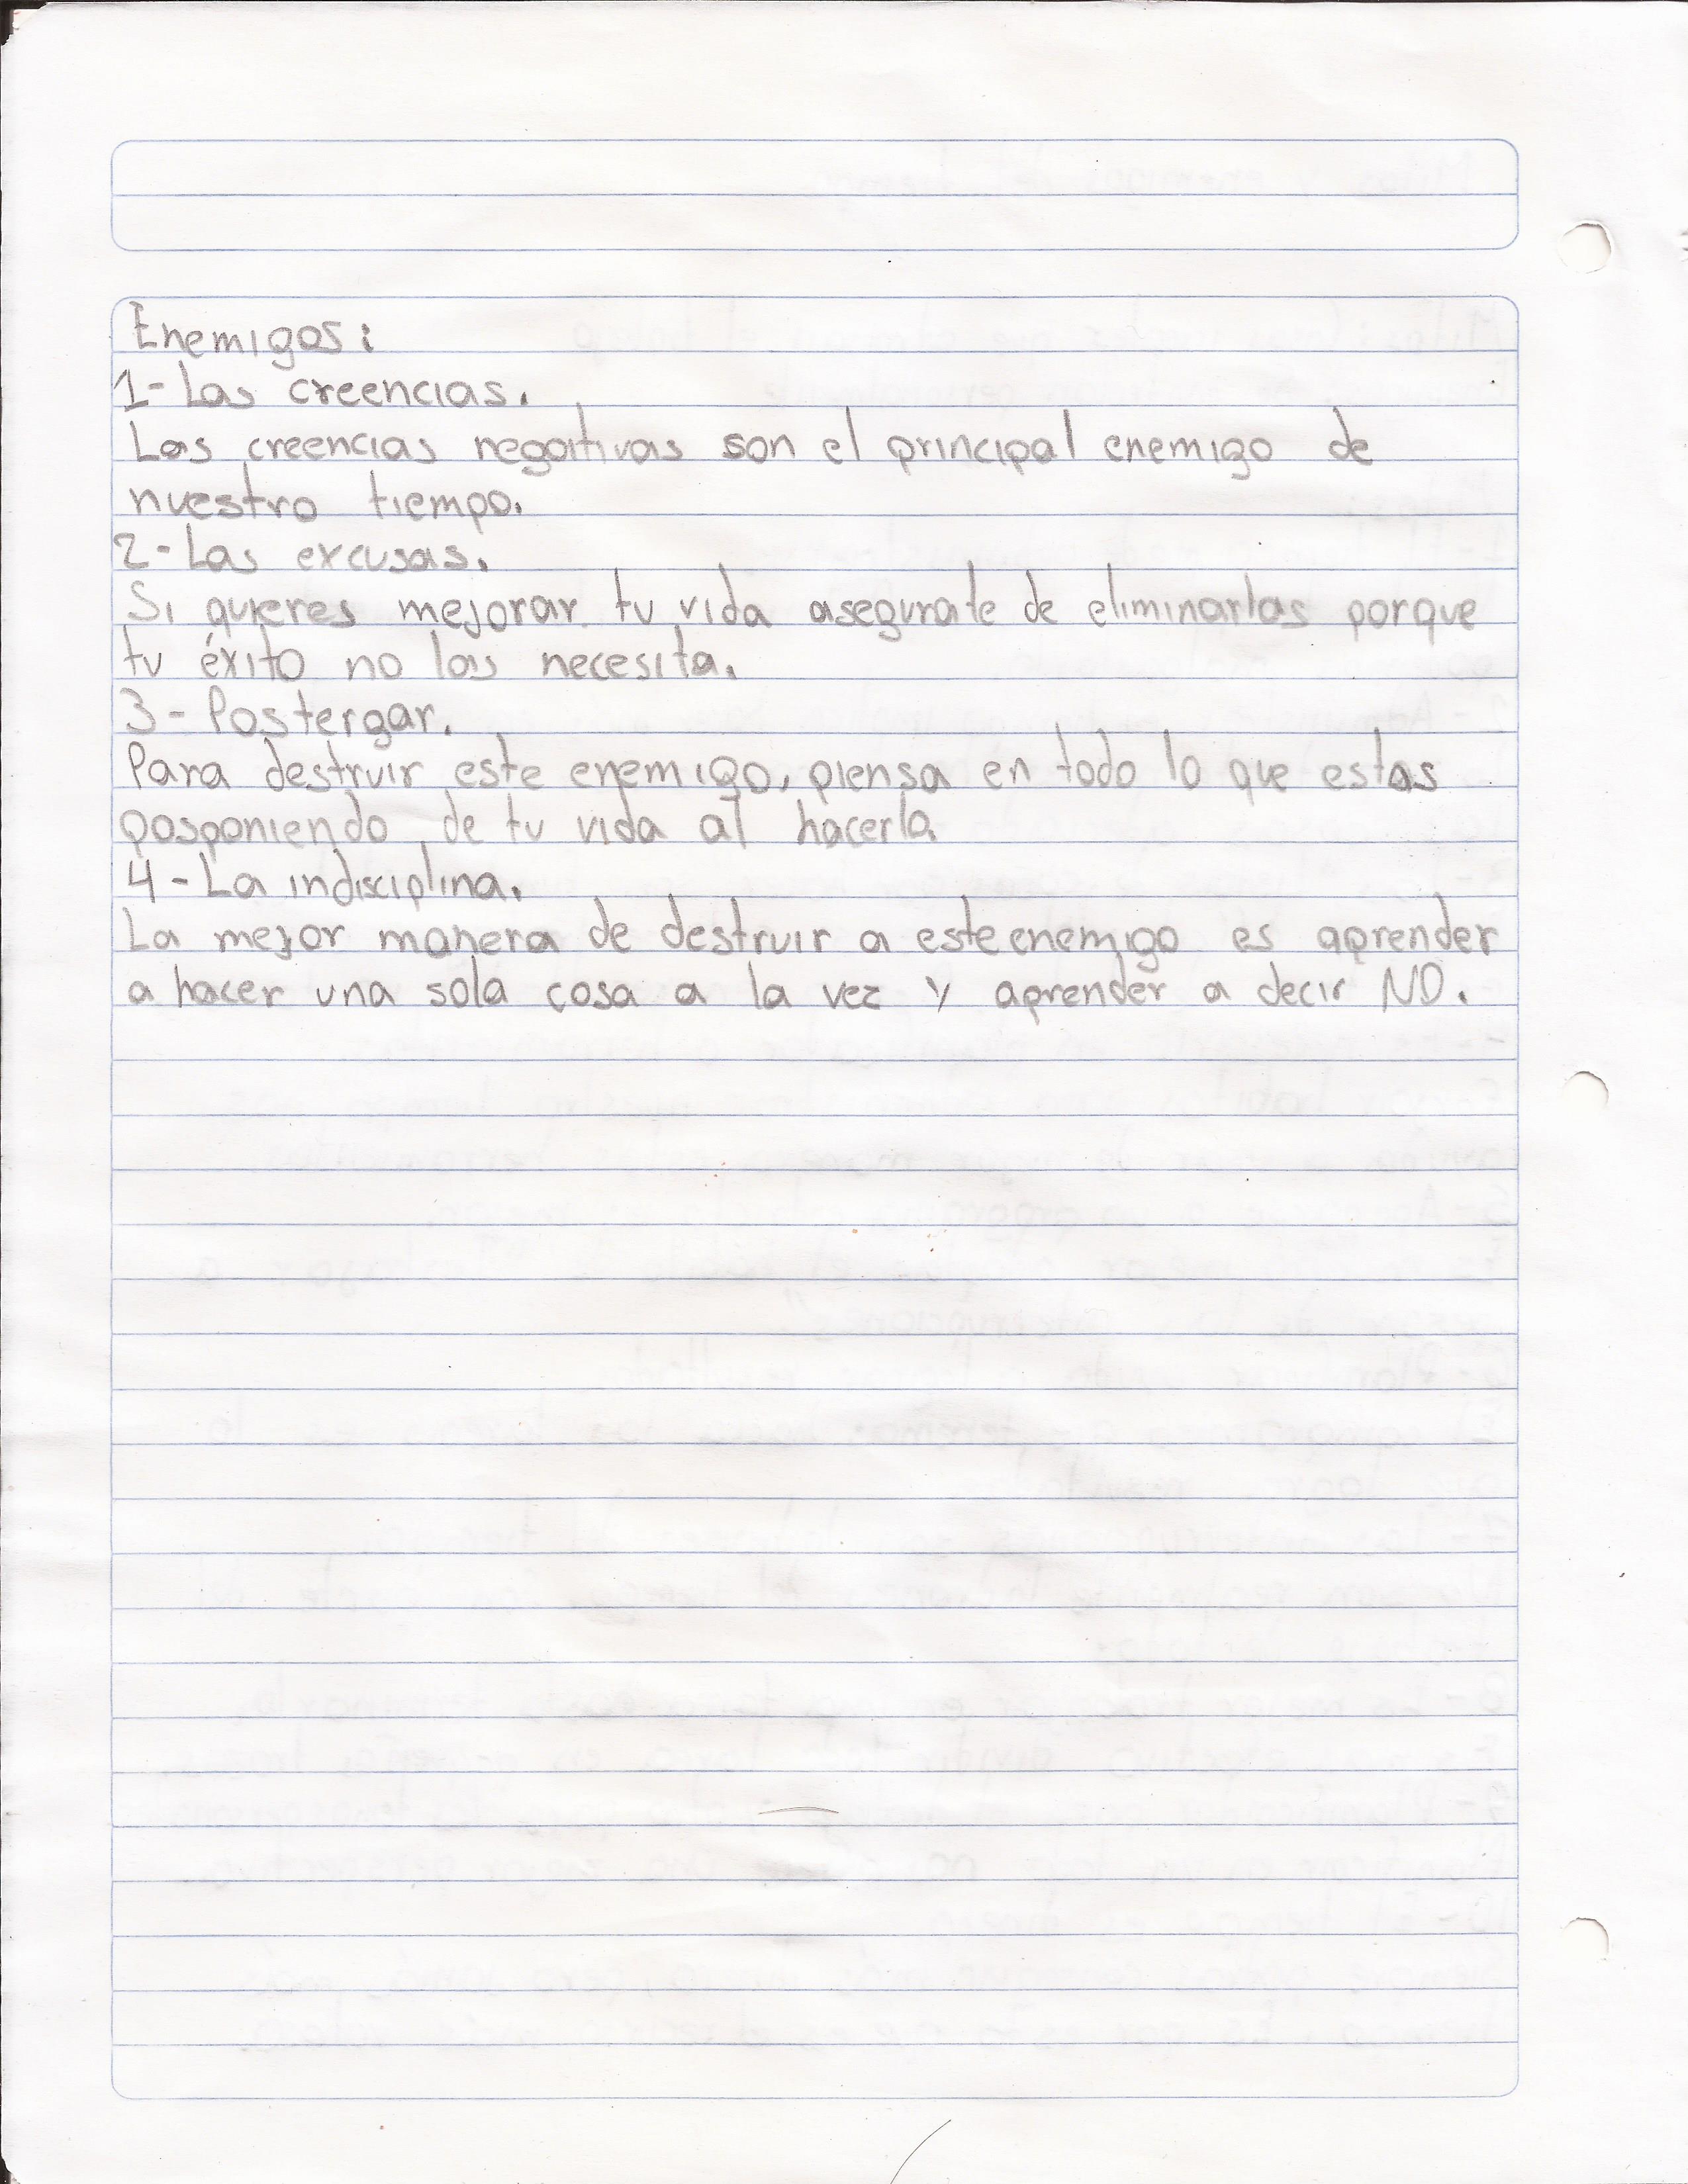 Enemigos:
1- Las creencias.
Las creencias negativas son el principal enemigo de
nuestro tiempo.
2- Las excusas.
Si quieres mejorar tu vida asegurate de eliminarlas porque
tu éxito no las necesita.
3- Postergar.
Para destruir este enemigo, piensa en todo lo que estas
posponiendo de tu vida al hacerla
4- La indisciplina.
La mejor manera de destruir a este enemigo es aprender
a hacer una sola cosa a la vez y aprender a decir NO.